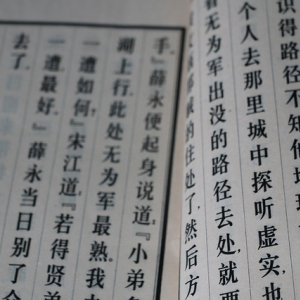 识得路径不知他
个人去那里城中探听虚实，也
看无为军出没的路径去处，就要
那贼的住处了，然后方
手。』薛永便起身说道：『小弟
湖上行，此处无为军最熟，我
一遭如何？』宋江道：『若得贤
一遭最好。』薛永当日别了
去了。